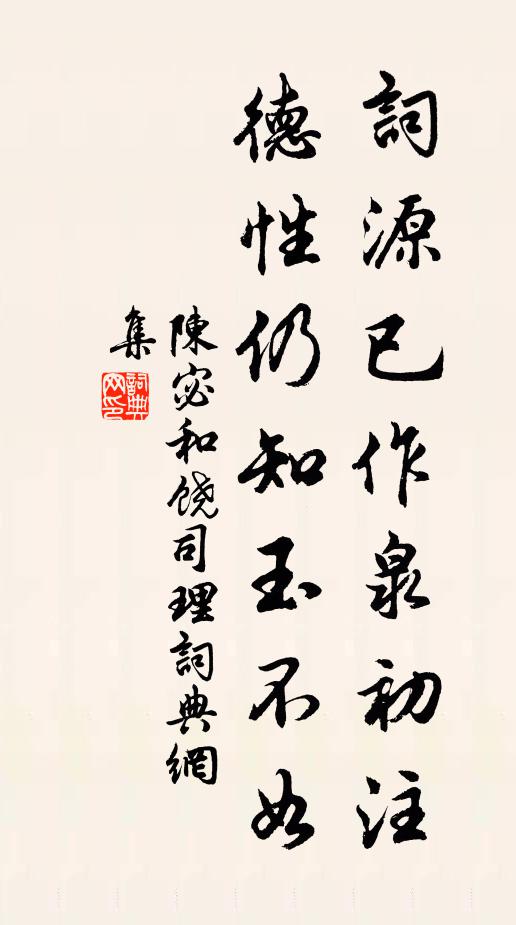 詞源已作泉初注
德性仍知玉不如
陳宓和饶司理詞典網
集
詞典网印